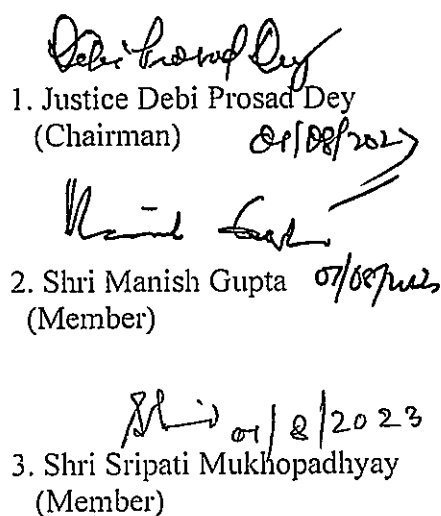 Debi Prosad Dey
1. Justice Debi Prosad Dey
(Chairman) 01/08/2023
2. Shri Manish Gupta 01/08/2023
(Member)
01/8/2023
3. Shri Sripati Mukhopadhyay
(Member)